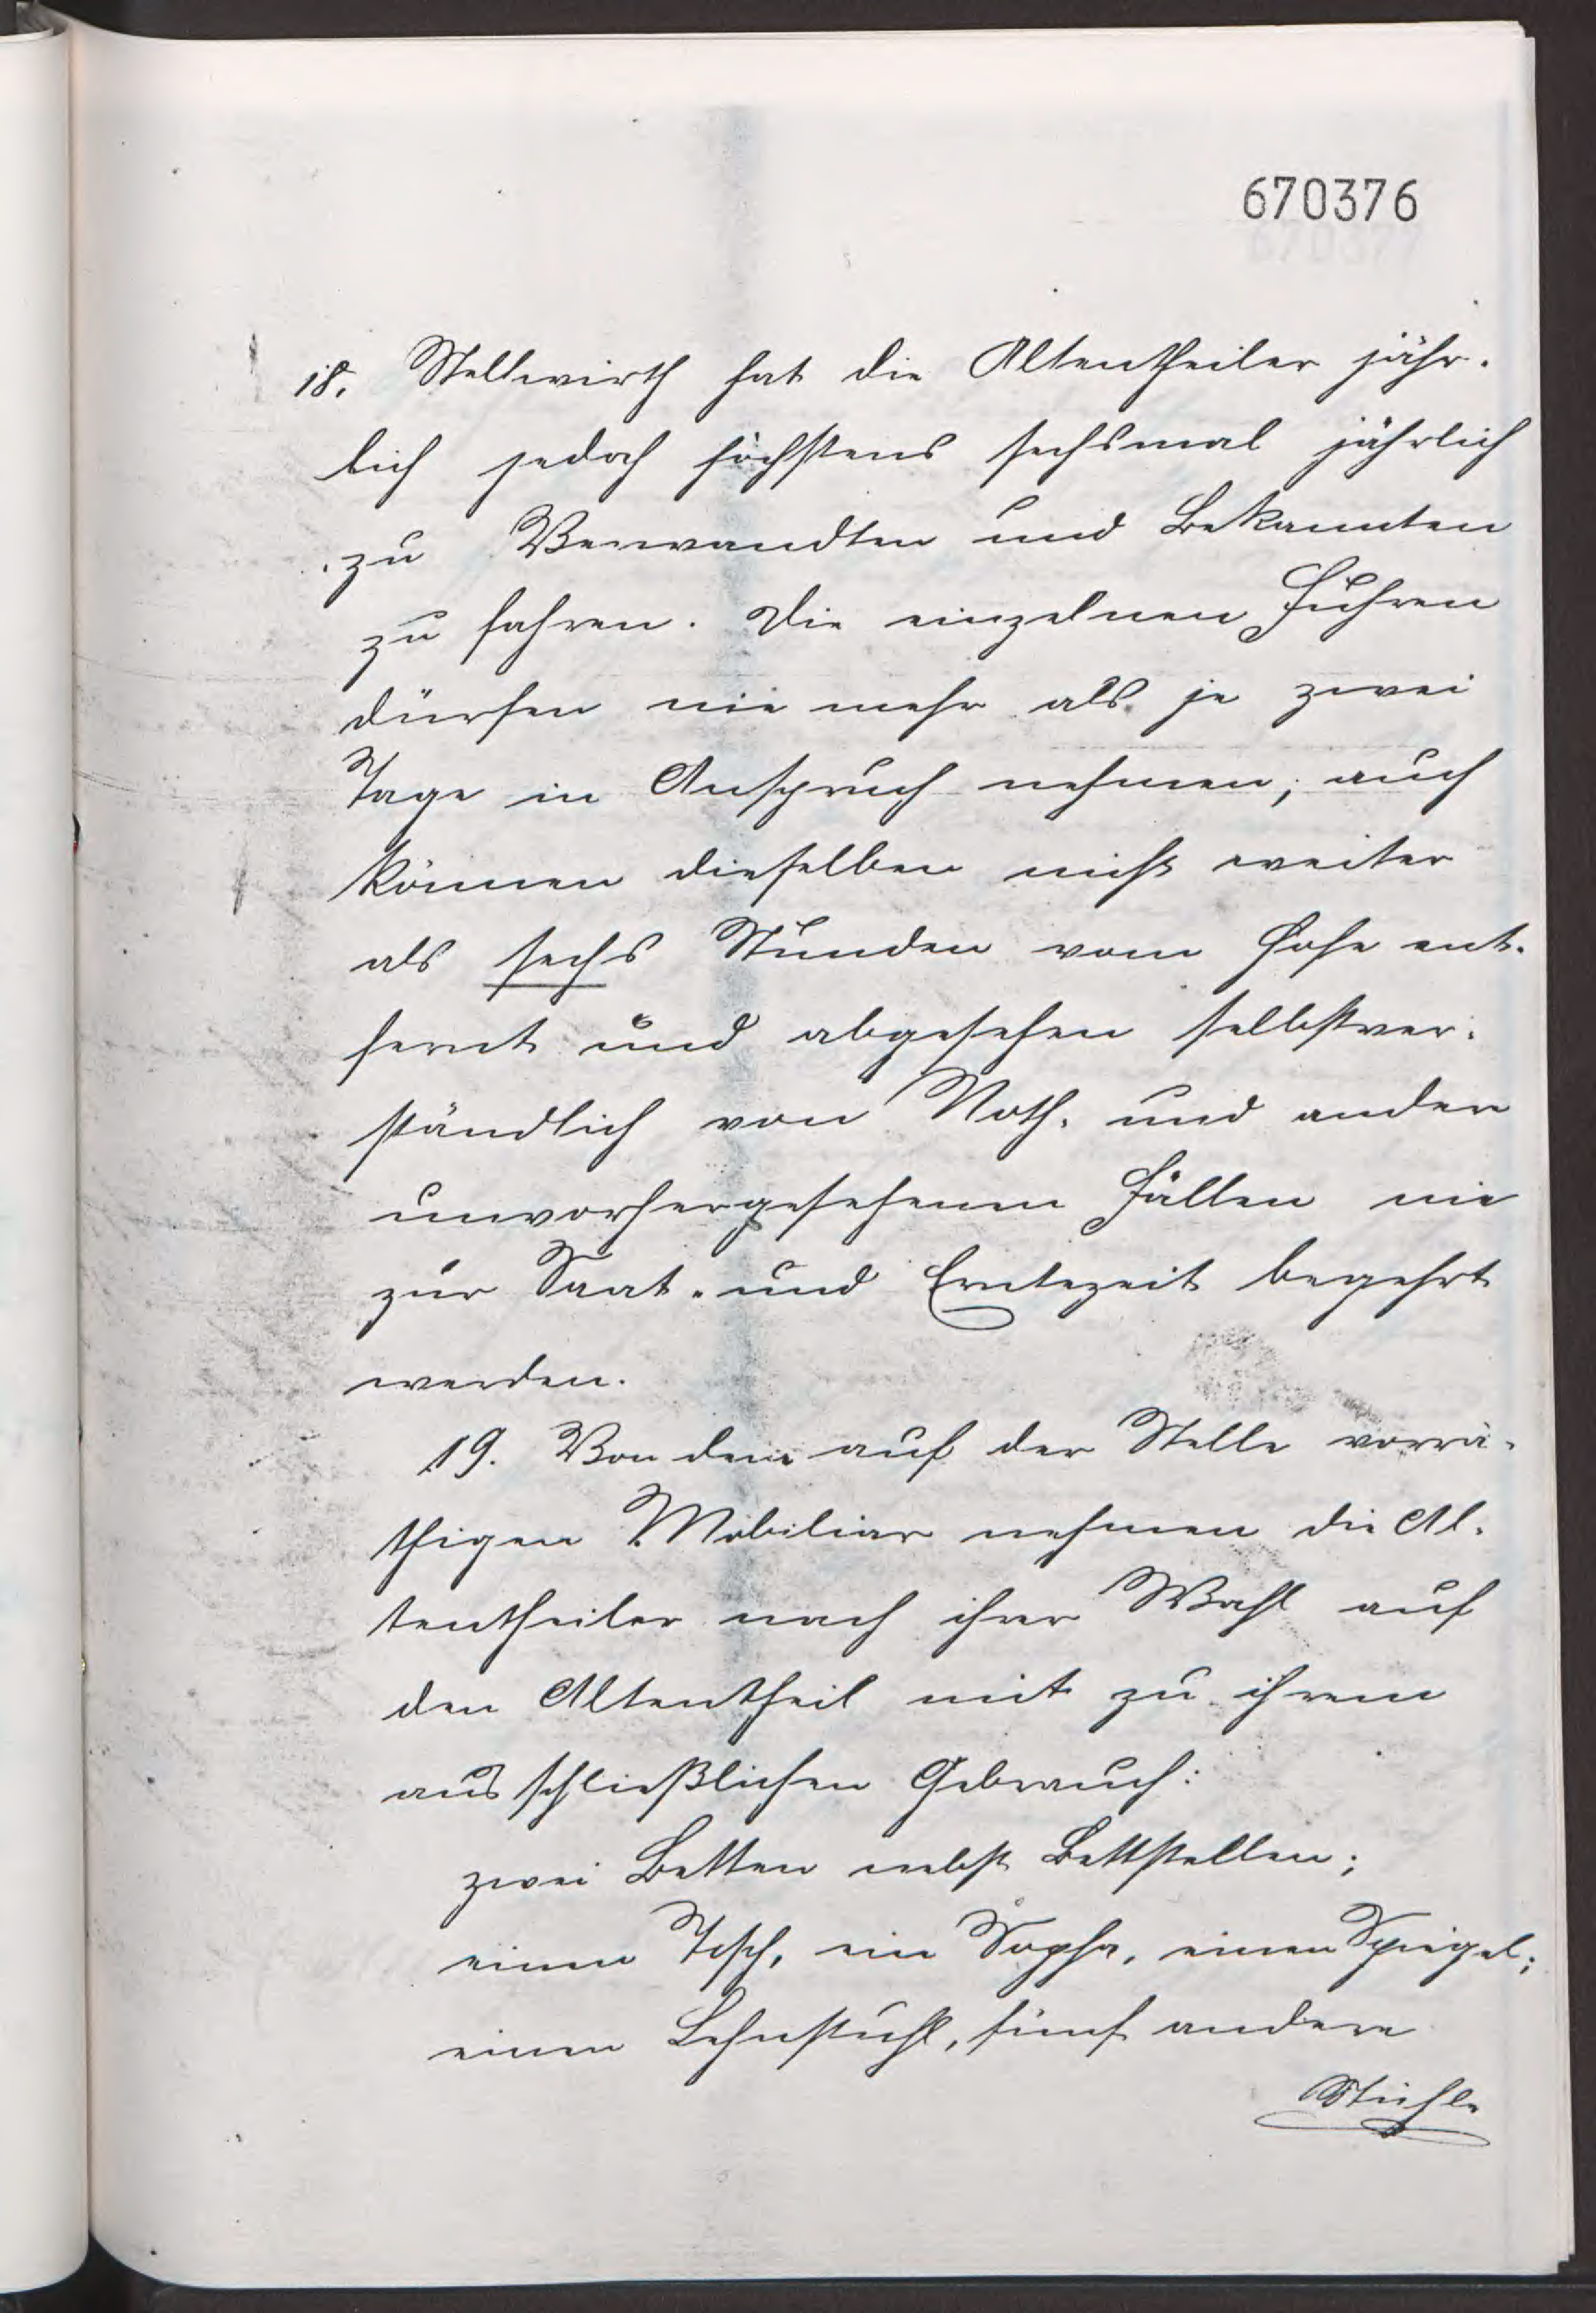 670376
18. Stellwirth hat die Altentheiler jähr-
lich jedoch höchstens sechsmal jährlich
zu Verwandten und Bekannten
zu fahren. Die einzelnen Fuhren
dürfen nie mehr als je zwei
Tage in Anspruch nehmen; auch
können dieselben nicht weiter
als sechs Stunden vom Hofe ent-
fernt und abgesehen selbstver-
ständlich von Noth- und andern
unvorhergesehenen Fällen nie
zur Saat- und Erntezeit begehrt
werden.
19. Von dem auf der Stelle vorrä-
thigen Mobiliar nehmen die Al-
tentheiler nach ihrer Wahl auf
den Altentheil mit zu ihrem
ausschließlichen Gebrauch:
zwei Betten nebst Bettstellen;
einen Tisch, ein Sopha, einen Spiegel;
einen Lehnstuhl, fünf andere
Stühle